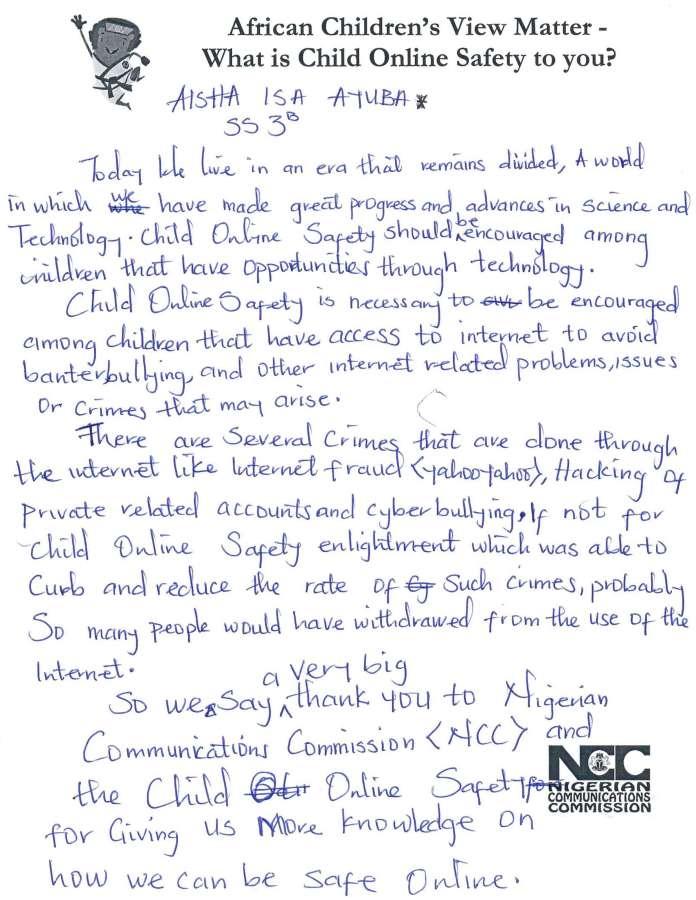 African Children's View Matter -
What is Child Online Safety to you?
AISHA ISA AYUBA
SS 3B
Today We live in an era that remains divided, A world
in which we have made great progress and advances in science and
Technology. Child Online Safety should be encouraged among
children that have opportunities through technology.
Child Online Safety is necessary to be encouraged
among children that have access to internet to avoid
banterbullying, and other internet related problems, issues
Or crimes that may arise.
There are Several Crimes that are done through
the internet like Internet fraud <yahoo-yahoo>, Hacking of
private related accounts and cyberbullying, If not for
Child Online Safety enlightment which was able to
Curb and reduce the rate of Such crimes, probably
So many people would have withdrawed from the use of the
Internet.
So we Say a very big thank you to Nigerian
Communications Commission <NCC> and
the Child Online Safety
for Giving us More knowledge on
how we can be safe Online.
NCC
NIGERIAN
COMMUNICATIONS
COMMISSION